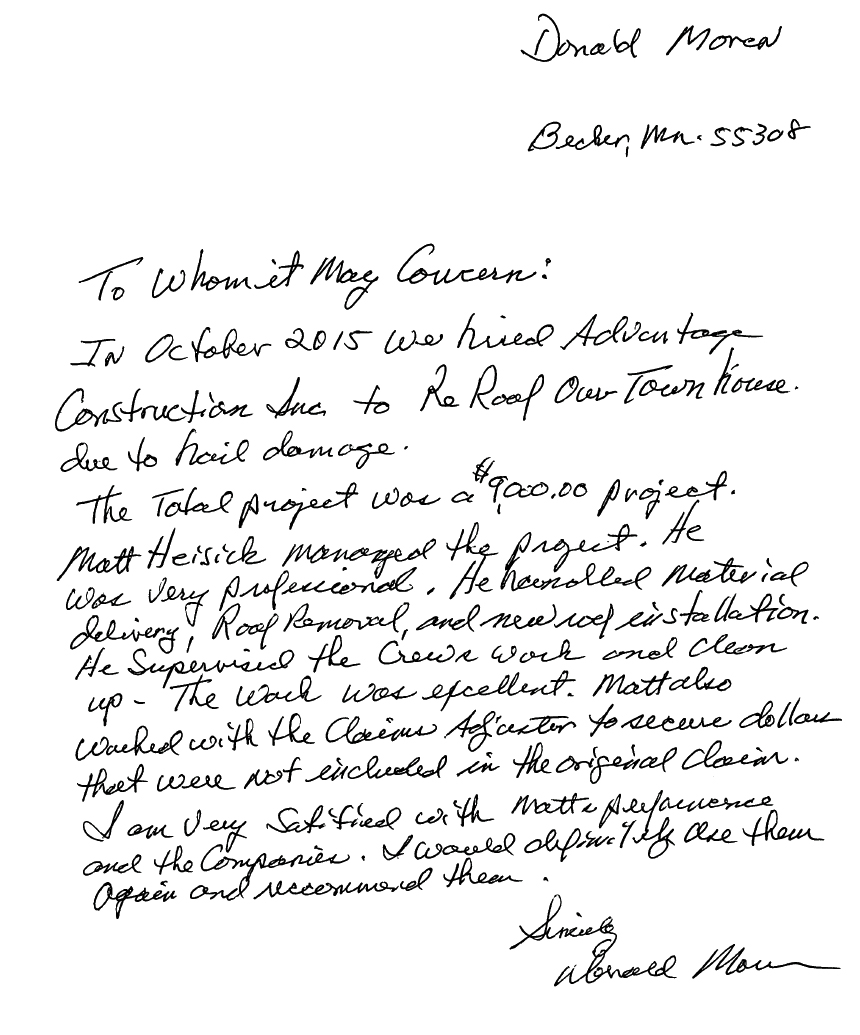 Donald Moren
Becker, Mn. 55308
To Whom it May Concern:
In October 2015 we hired Advantage
Construction Inc. to Re Roof Our Town house.
due to hail damage.
The Total project was a $9,000.00 project.
Matt Heisick managed the project. He
was very professional. He handled material
delivery, Roof Removal, and new roof installation.
He Supervised the Crews work and clean
up - The work was excellent. Matt also
worked with the Claims Adjuster to secure dollars
that were not included in the original Claim.
I am very Satisfied with Matts performance
and the Companies. I would definitely use them
again and recommend them.
Sincerely
Donald Moren